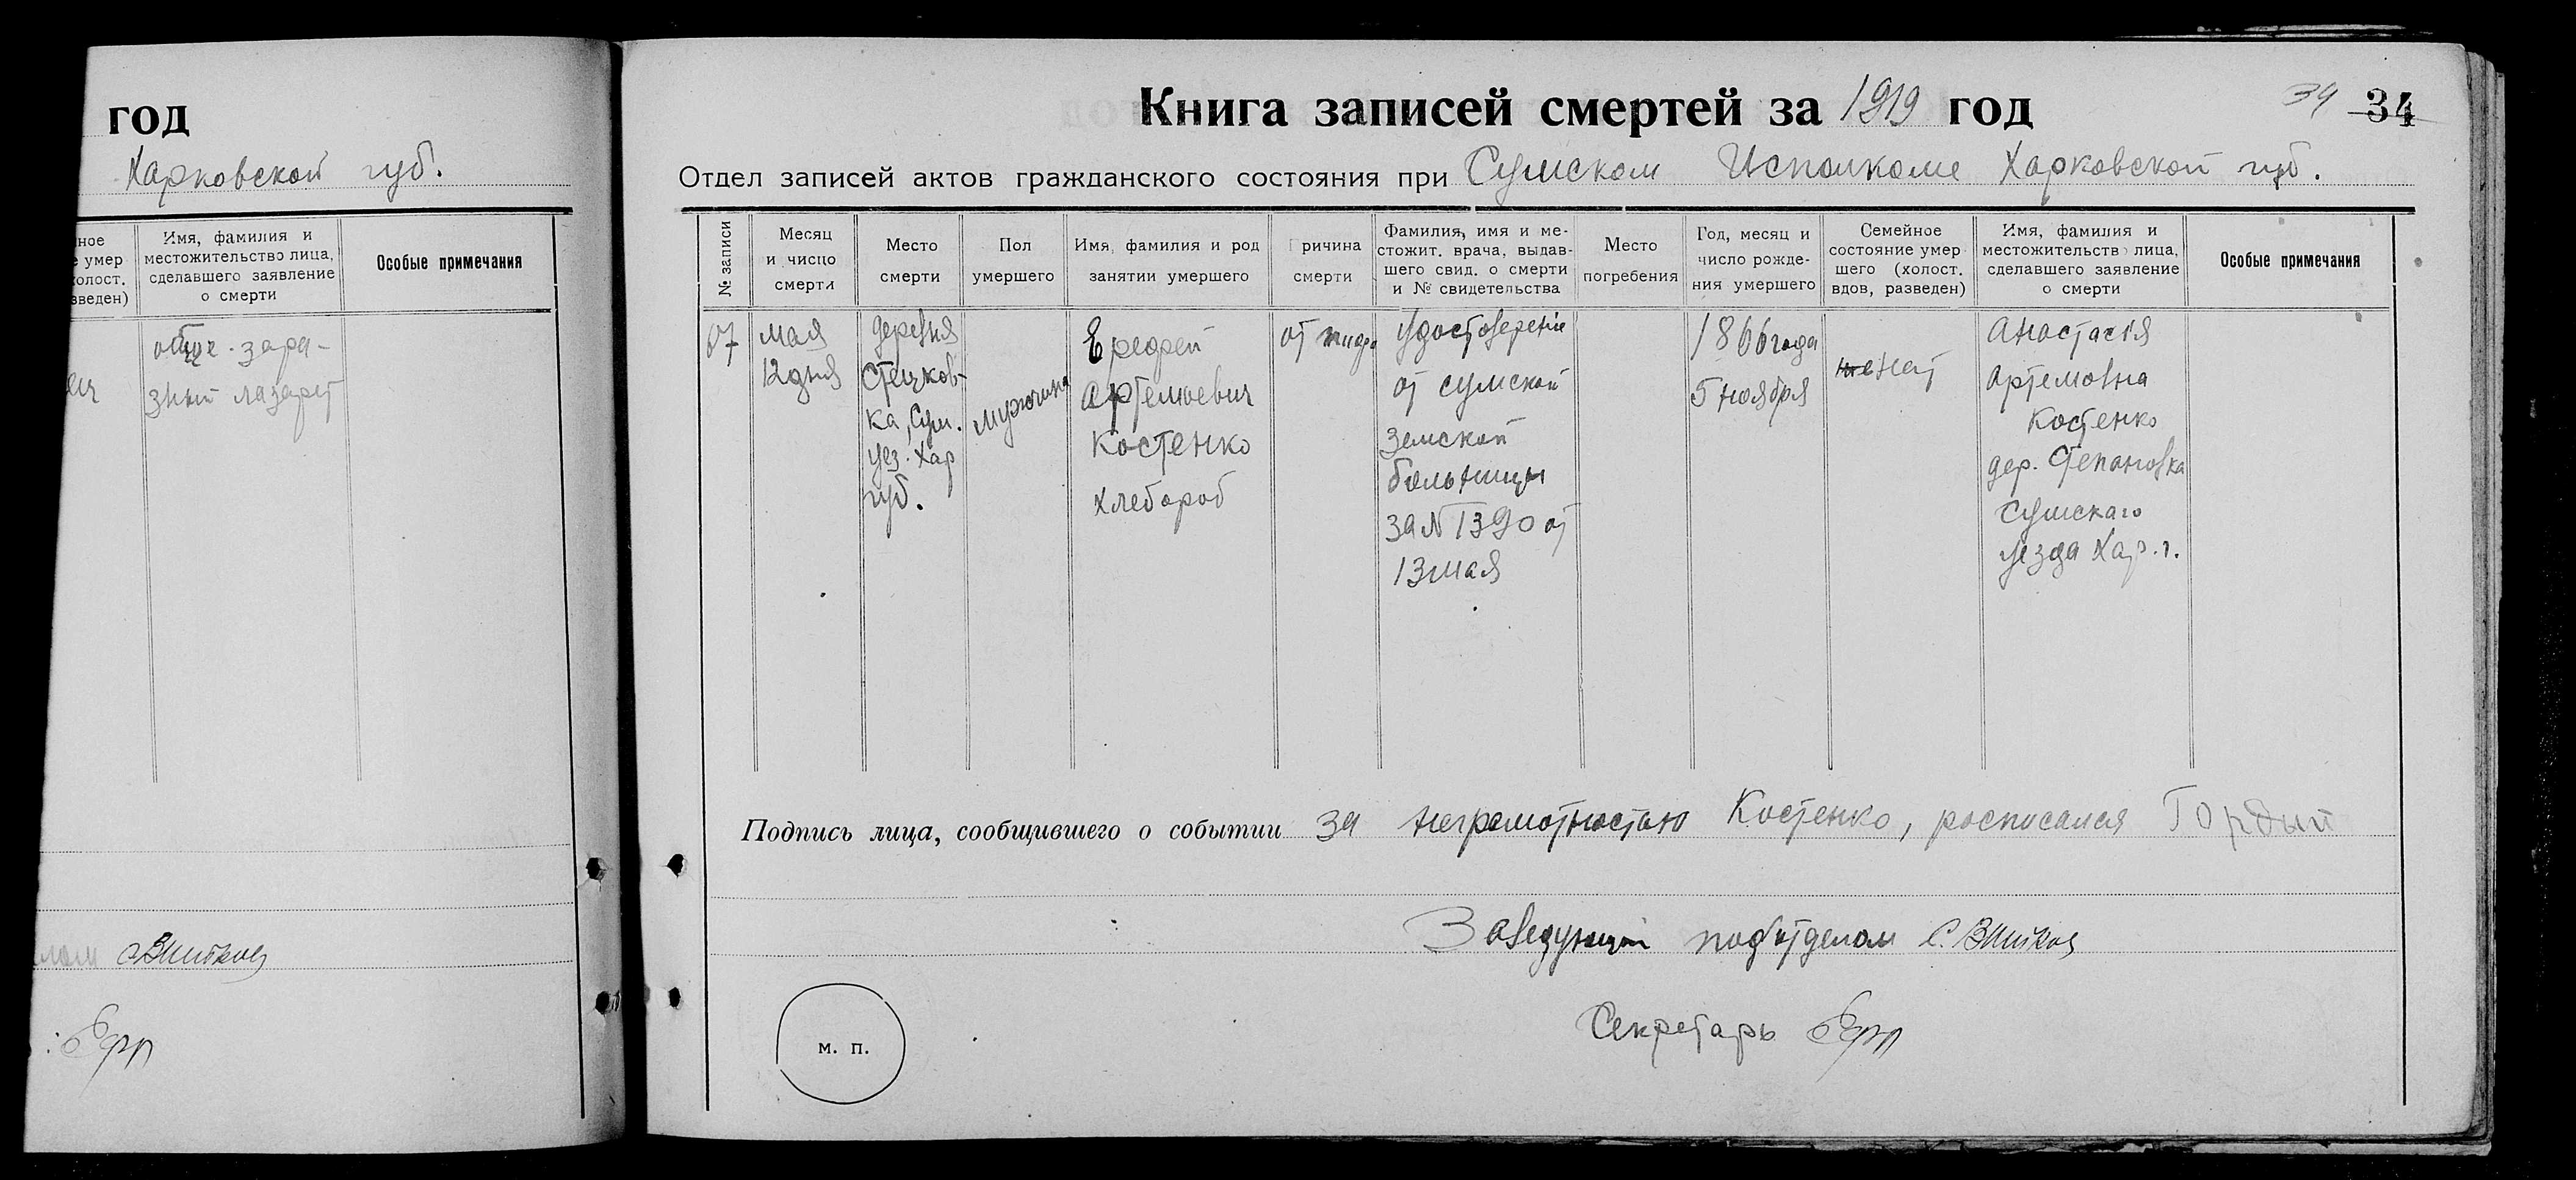 год
Харковской губ.
ное
е умер
холост.
зведен)
Имя, фамилия и
местожительство лица,
сделавшего заявление
о смерти
Особые примечания
зара-
зный лазарет
Книга записей смертей за 1919 год
34 34
Отдел записей актов гражданского состояния при Сумском Исполкоме Харковской губ.
№ записи
Месяц
и число
смерти
Место
смерти
Пол
умершего
Имя, фамилия и род
занятии умершего
Причина
смерти
Фамилия, имя и ме-
стожит. врача, выдав-
шего свид. о смерти
и № свидетельства
Место
погребения
Год, месяц и
число рожде-
ния умершего
Семейное
состояние умер
шего (холост.
вдов, разведен)
Имя, фамилия и
местожительство лица,
сделавшего заявление
о смерти
Особые примечания
мая
12 дня
деревня
Стецков-
ка, Сум.
уез. Хар
губ.
Мужчина
Артемоевич
Костенко
Хлебороб
от
Удостоверенie
от сумской
земской
больницы
за N 1390 от
13 мая
1866 года
5 ноября
Анастасiя
Артемовна
Костенко
дер. Степановка
Сумскаго
уезда Хар. г.
Подпись лица, сообщившего о событии за неграмотностью Костенко, росписался Гордый
Заведующий подотделом С.
Секретарь
м. п.